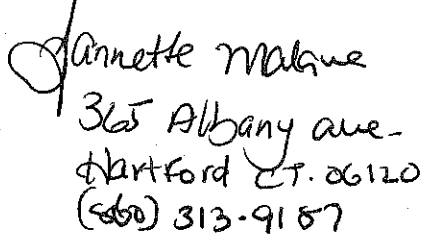 Jannette Malave
365 Albany ave.
Hartford CT. 06120
(860) 313-9187